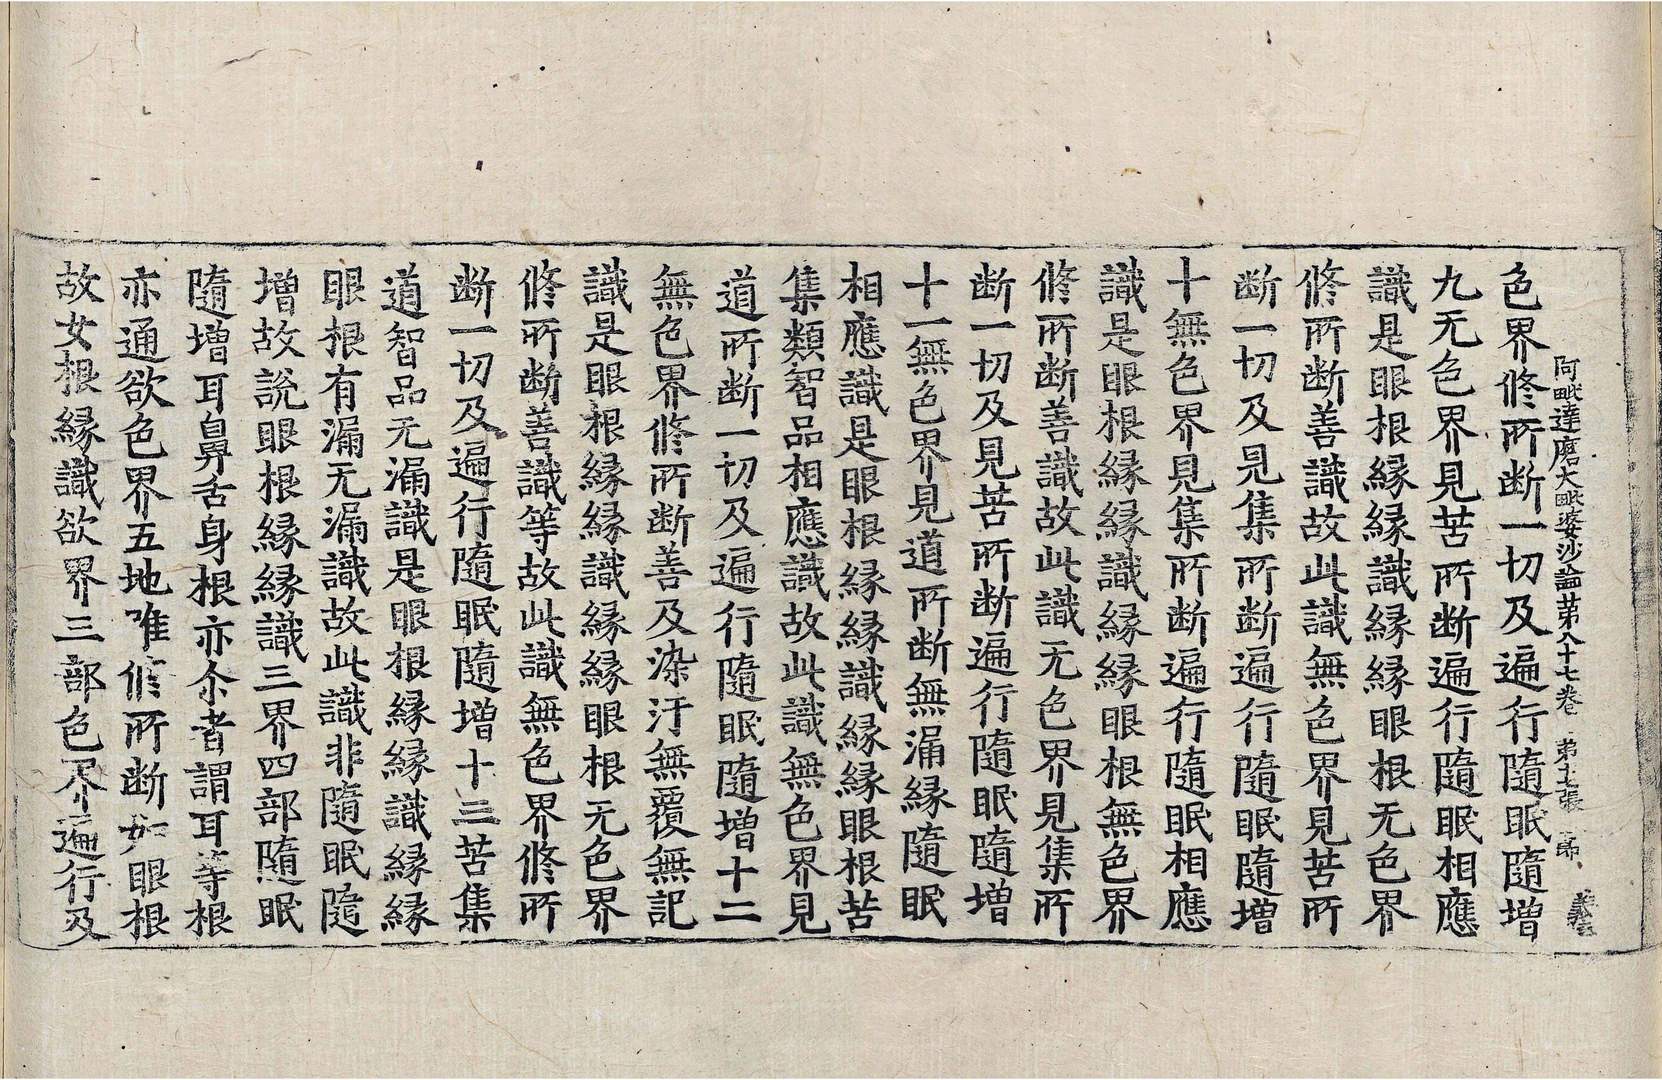 阿毗達磨大毗婆沙論苐八十七卷 苐十七張 節
色界修所断一切及遍行隨眠隨增
九无色界見苦所断遍行隨眠相應
識是眼根緣緣識緣緣眼根无色界
修所断善識故此識無色界見苦所
断一切及見集所断遍行隨眠隨增
十無色界見集所断遍行隨眠相應
識是眼根緣緣識緣緣眼根無色界
修所断善識故此識无色界見集所
断一切及見苦所断遍行隨眠隨增
十一無色界見道所断無漏緣隨眠
相應識是眼根緣緣識緣緣眼根苦
集類智品相應識故此識無色界見
道所断一切及遍行隨眠隨增十二
無色界修所断善及染汙無覆無記
識是眼根緣緣識緣緣眼根无色界
修所断善識等故此識無色界修所
断一切及遍行隨眠隨增十三苦集
道智品无漏識是眼根緣緣識緣緣
眼根有漏无漏識故此識非隨眠隨
增故說眼根緣緣識三界四部隨眠
隨增耳鼻舌身根亦尒者謂耳等根
亦通欲色界五地唯修所断如眼根
故女根緣識欲界三部色界遍行及